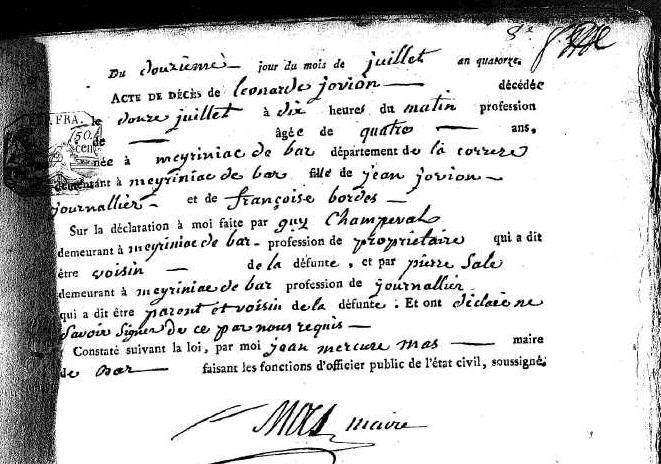 Du douzieme jour du mois de juillet an quatorze.
ACTE DE DÉCÈS de leonarde jovion décédée
le douze juillet à dix heures du matin profession
de âgée de quatre ans,
née à meyriniac de bar département de la correze
demeurant à meyriniac de bar fille de jean jovion
journallier et de françoise bordes
Sur la déclaration à moi faite par guy Champeval
demeurant à meyriniac de bar profession de propriétaire qui a dit
être voisin de la défunte, et par pierre Sale
demeurant à meyriniac de bar profession de journallier
qui a dit être parent et voisin de la défunte : Et ont déclaré ne
Savoir Signer de ce par nous requis
Constaté suivant la loi, par moi jean mercure mas maire
de Bar faisant les fonctions d'officier public de l'état civil, soussigné.
Mas maire
FRA.
50
CEN